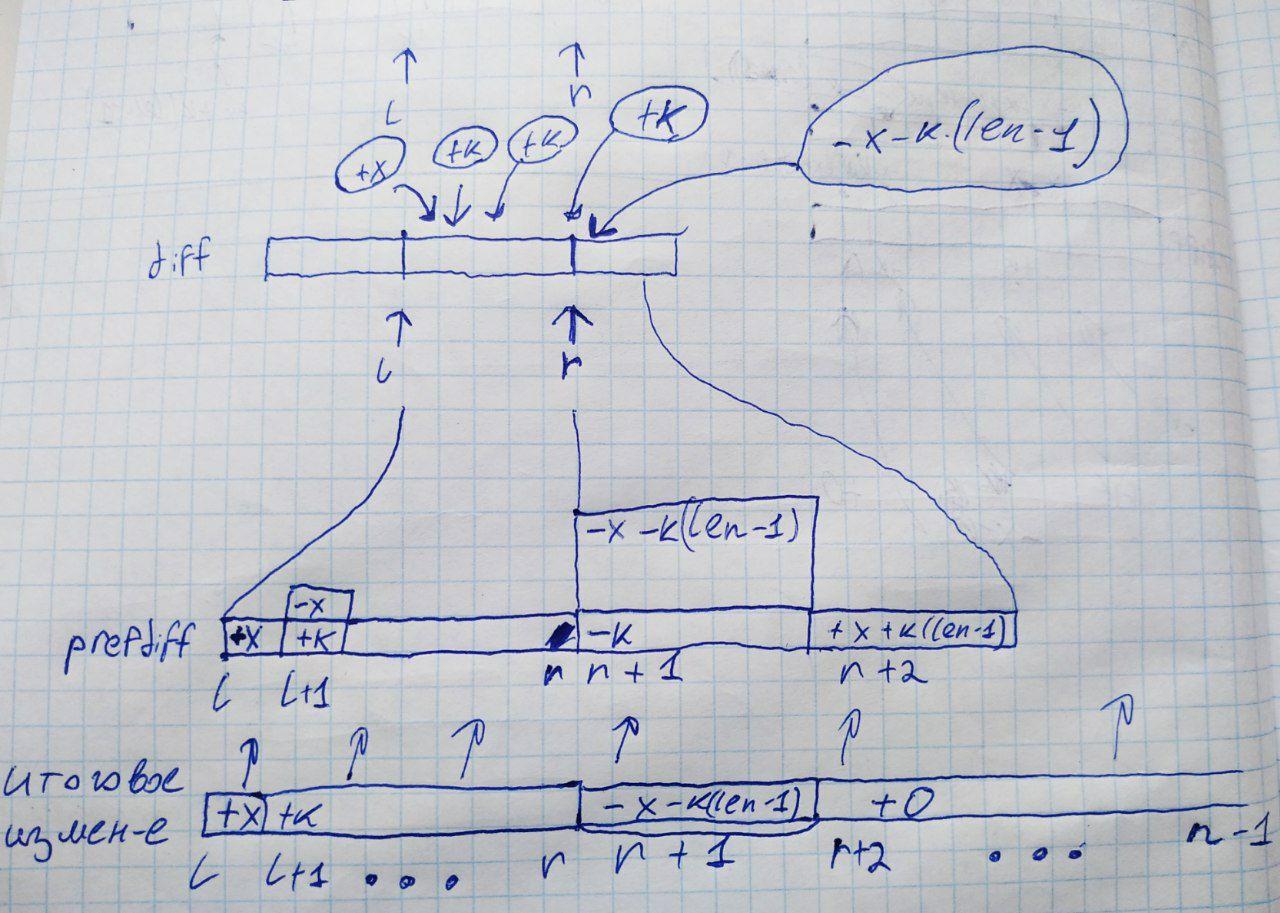 l r
+x +k +k +k -x-k.(len-1)
diff
l r
-x -k(len-1)
-x
prefdiff +x +k -k +x+k((len-1)
l l+1 r r+1 r+2
итоговое
измен-е
+x +k -x-k(len-1) +0
l l+1 ... r r+1 r+2 ... n-1